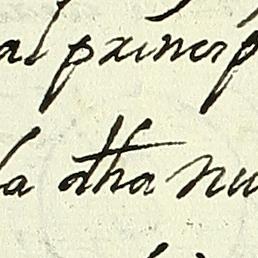 al princip
la dha nu